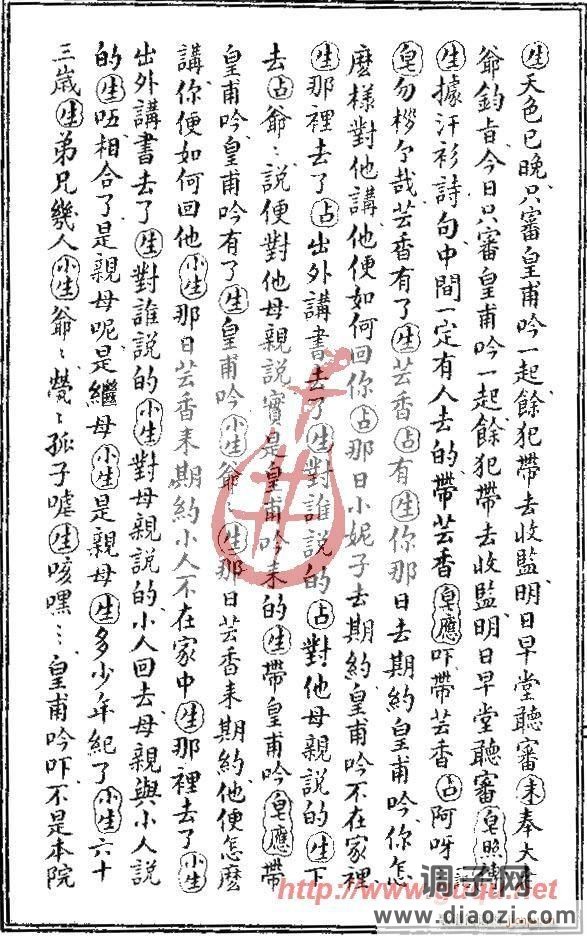 生天色已晚只審皇甫吟一起餘犯帶去收監明日早堂聽審末奉大老
爺鈞旨今日只審皇甫吟一起餘犯帶去收監明日早堂聽審皂照
生據汗衫詩句中間一定有人去的帶芸香皂應吓帶芸香占阿呀
皂勿椤介哉芸香有了生芸香占有生你那日去期約皇甫吟你怎
麽樣對他講他便如何回你占那日小妮子去期約皇甫吟不在家裡
生那裡去了占出外講書去了生對誰說的占對他母親說的生下
去占爺〻說便對他母親說實是皇甫吟来的生帶皇甫吟皂應帶
皇甫吟皇甫吟有了生皇甫吟小生爺〻生那日芸香来期約他便怎麽
講你便如何回他小生那日芸香来期約小人不在家中生那裡去了小生
出外講書去了生對誰說的小生對母親說的小人回去母親與小人說
的生呸相合了是親母呢是繼母小生是親母生多少年紀了小生六十
三歲生弟兄幾人小生爺〻煢〻孤子嘘生咳嘿〻皇甫吟吓不是本院
http://www.guqu.net
调子网
www.diaozi.com